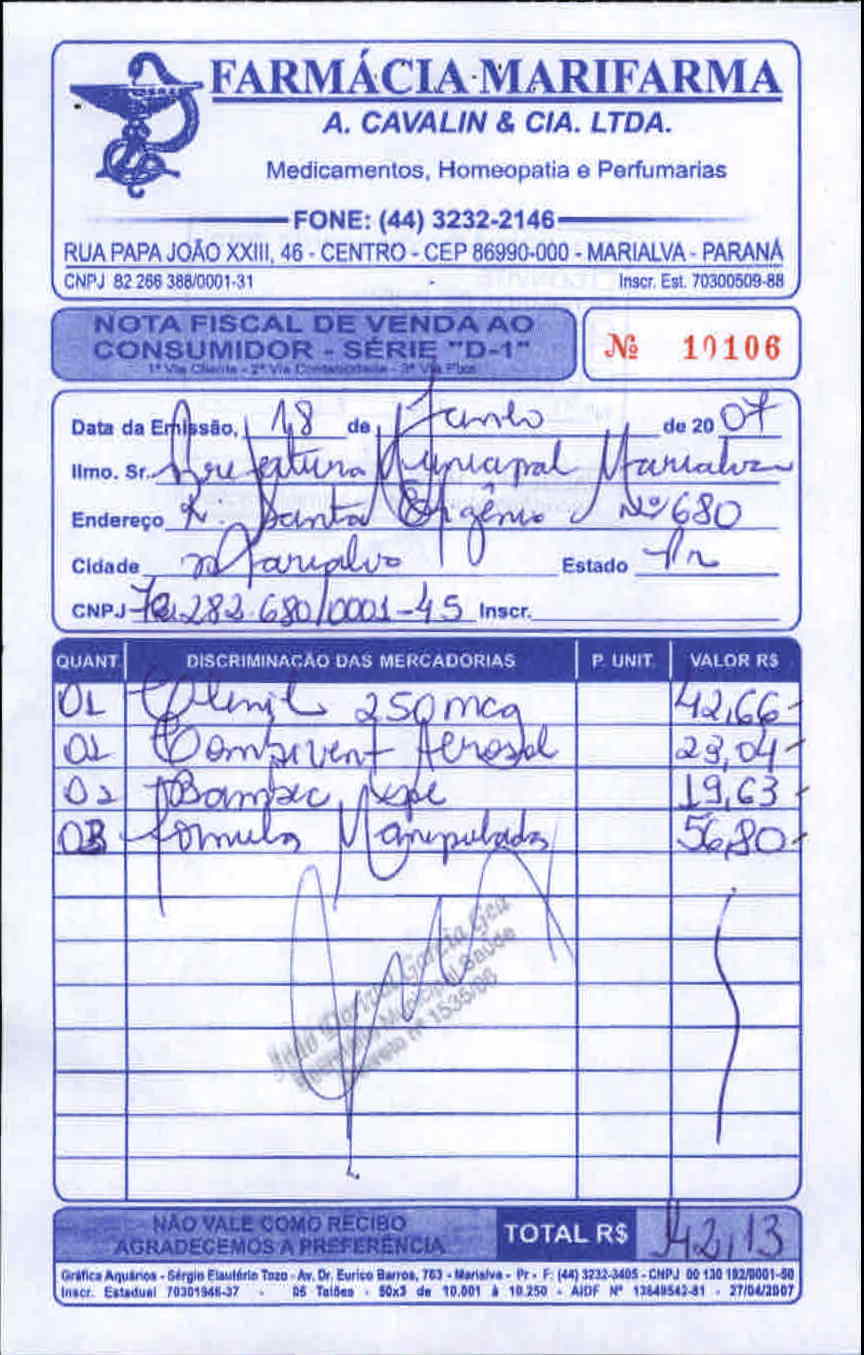 FARMÁCIA MARIFARMA
A. CAVALIN & CIA. LTDA.
Medicamentos, Homeopatia e Perfumarias
FONE: (44) 3232-2146
RUA PAPA JOÃO XXIII, 46 - CENTRO - CEP 86990-000 - MARIALVA - PARANÁ
CNPJ 82 266 388/0001-31 Inscr. Est. 70300509-88
NOTA FISCAL DE VENDA AO
CONSUMIDOR - SÉRIE "D-1"
1ª Via Cliente - 2ª Via Contabilidade - 3ª Via Fixa
Nº 10106
Data da Emissão, 18 de Junho de 2007
Ilmo. Sr. Prefeitura Municipal Marialva
Endereço R. Santa Efigênia Nº 680
Cidade Marialva Estado Pr
CNPJ 282.680/0001-45 Inscr.
QUANT. DISCRIMINAÇÃO DAS MERCADORIAS P. UNIT. VALOR R$
01 Clenil 250mcg 42,66
01 Combivent Aerosol 23,04
02 Bamifix 19,63
03 Fórmulas Manipuladas 56,80
Garcia
Municipal Saúde
nº 1535/06
NÃO VALE COMO RECIBO
AGRADECEMOS A PREFERÊNCIA
TOTAL R$ 142,13
Gráfica Aquários - Sérgio Elautério Tozo - Av. Dr. Eurico Barros, 763 - Marialva - Pr - F: (44) 3232-3405 - CNPJ 00 130 192/0001-60
Inscr. Estadual 70301946-37 - 05 Talões - 50x3 de 10.001 à 10.250 - AIDF Nº 13649542-81 - 27/04/2007